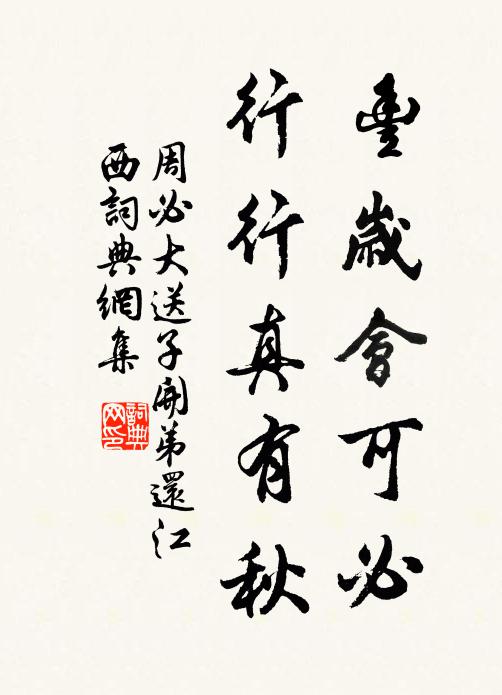 豐歲會可必
行行真有秋
周必大送子開弟還江
西詞典網集
詞典网印